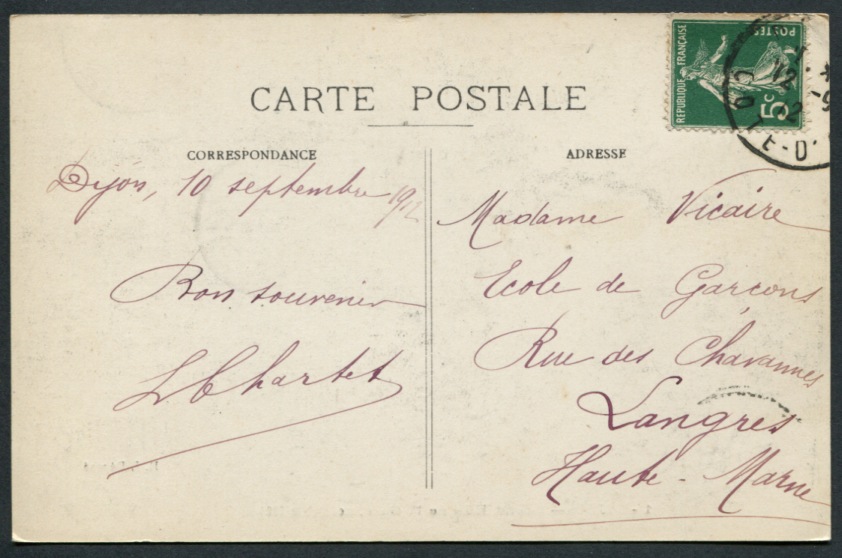 CARTE POSTALE
CORRESPONDANCE
Dijon, 10 septembre 1912
Bon souvenir
ADRESSE
Madame Vicaire
Ecole de Garçons
Rue des Chavannes
Langres
Haute-Marne
REPUBLIQUE FRANÇAISE
POSTES
5c
TE-D'